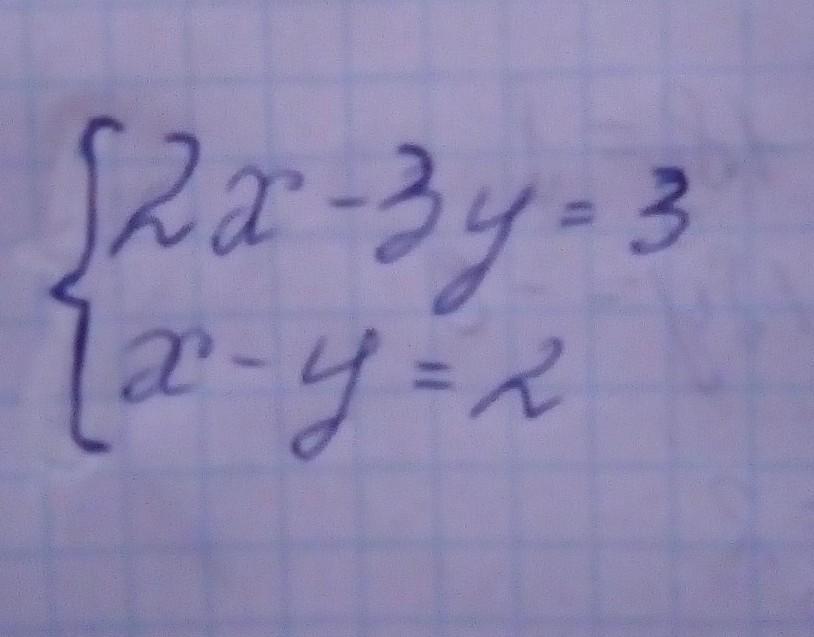 2x - 3y = 3
x - y = 2